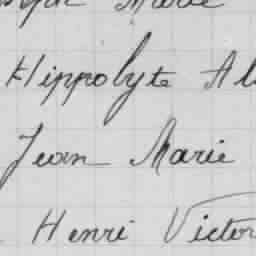 Marie
Hippolyte Al
Jean Marie
Henri Victor